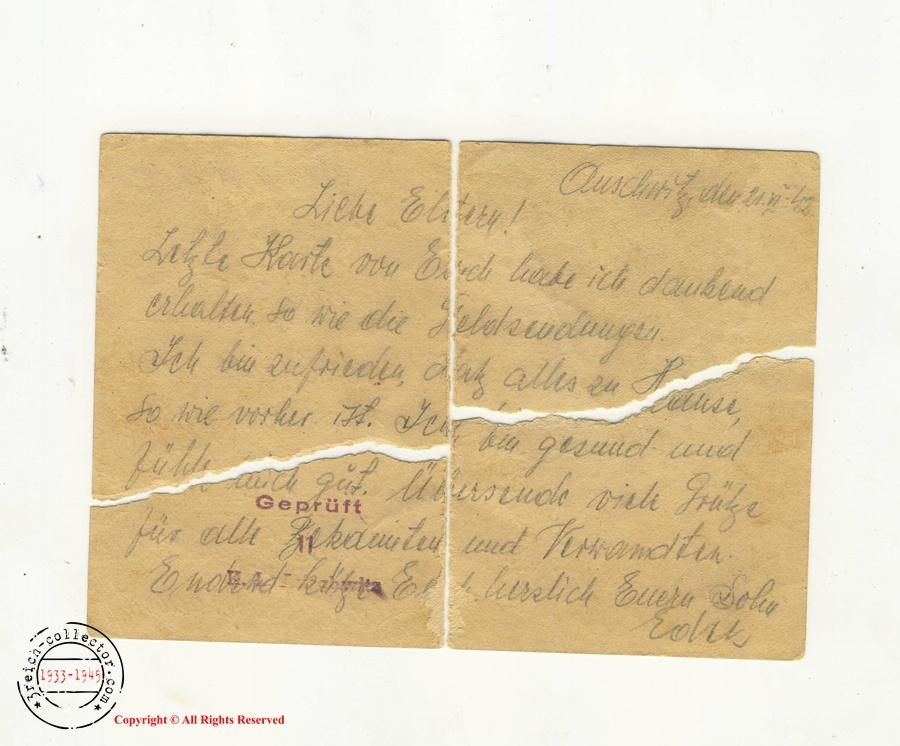 Auschwitz, den 21.VI.42.
Liebe Eltern!
Letzte Karte von Euch habe ich dankend
erhalten. so wie die Geldsendungen.
Ich bin zufrieden, datz alles zu Hause,
so wie vorher ist. Ich bin gesund und
fühle mich gut. Übersende viele Grütze
für alle Bekannten und Verwandten.
Euch herzlich Euern Sohn
Edek
Geprüft
11
3reich-collector.com
1933-1945
Copyright © All Rights Reserved